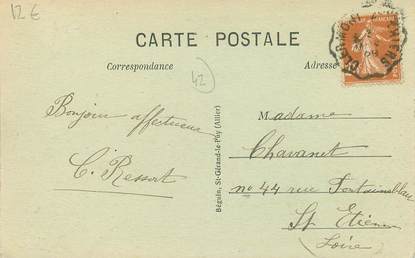 12 €
CARTE POSTALE
Correspondance
Adresse
42
Bonjour affectueux
C. Ressort
Béguin, St-Gérand-le-Puy (Allier)
Madame
Chavanet
no 44 rue Fontainebleau
St Etienne
(Loire)